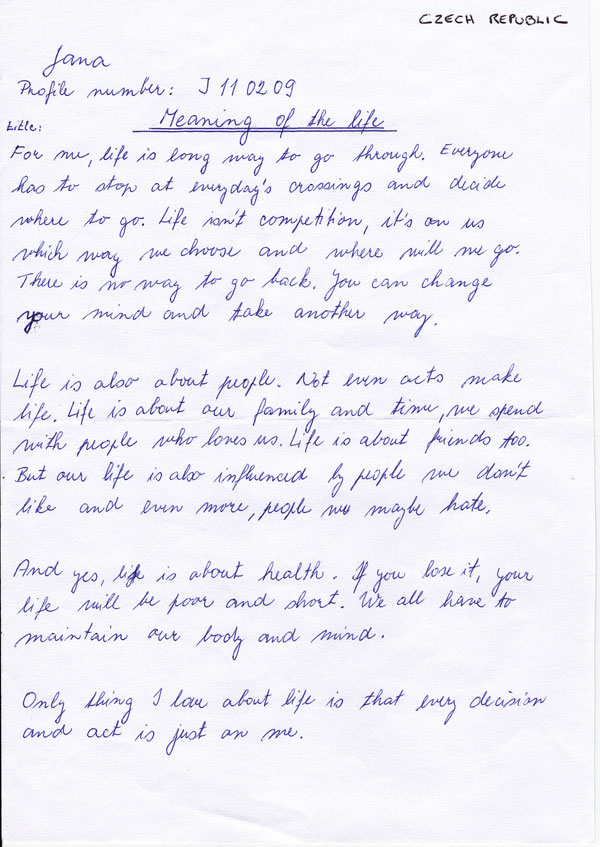 CZECH REPUBLIC
Jana
Profile number: J 11 02 09
title: Meaning of the life
For me, life is long way to go through. Everyone
has to stop at everyday's crossings and decide
where to go. Life isn't competition, it's on us
which way we choose and where will we go.
There is no way to go back. You can change
your mind and take another way.
Life is also about people. Not even acts make
life. Life is about our family and time, we spend
with people who loves us. Life is about friends too.
But our life is also influenced by people we don't
like and even more, people we maybe hate.
And yes, life is about health. If you lose it, your
life will be poor and short. We all have to
maintain our body and mind.
Only thing I love about life is that every decision
and act is just on me.